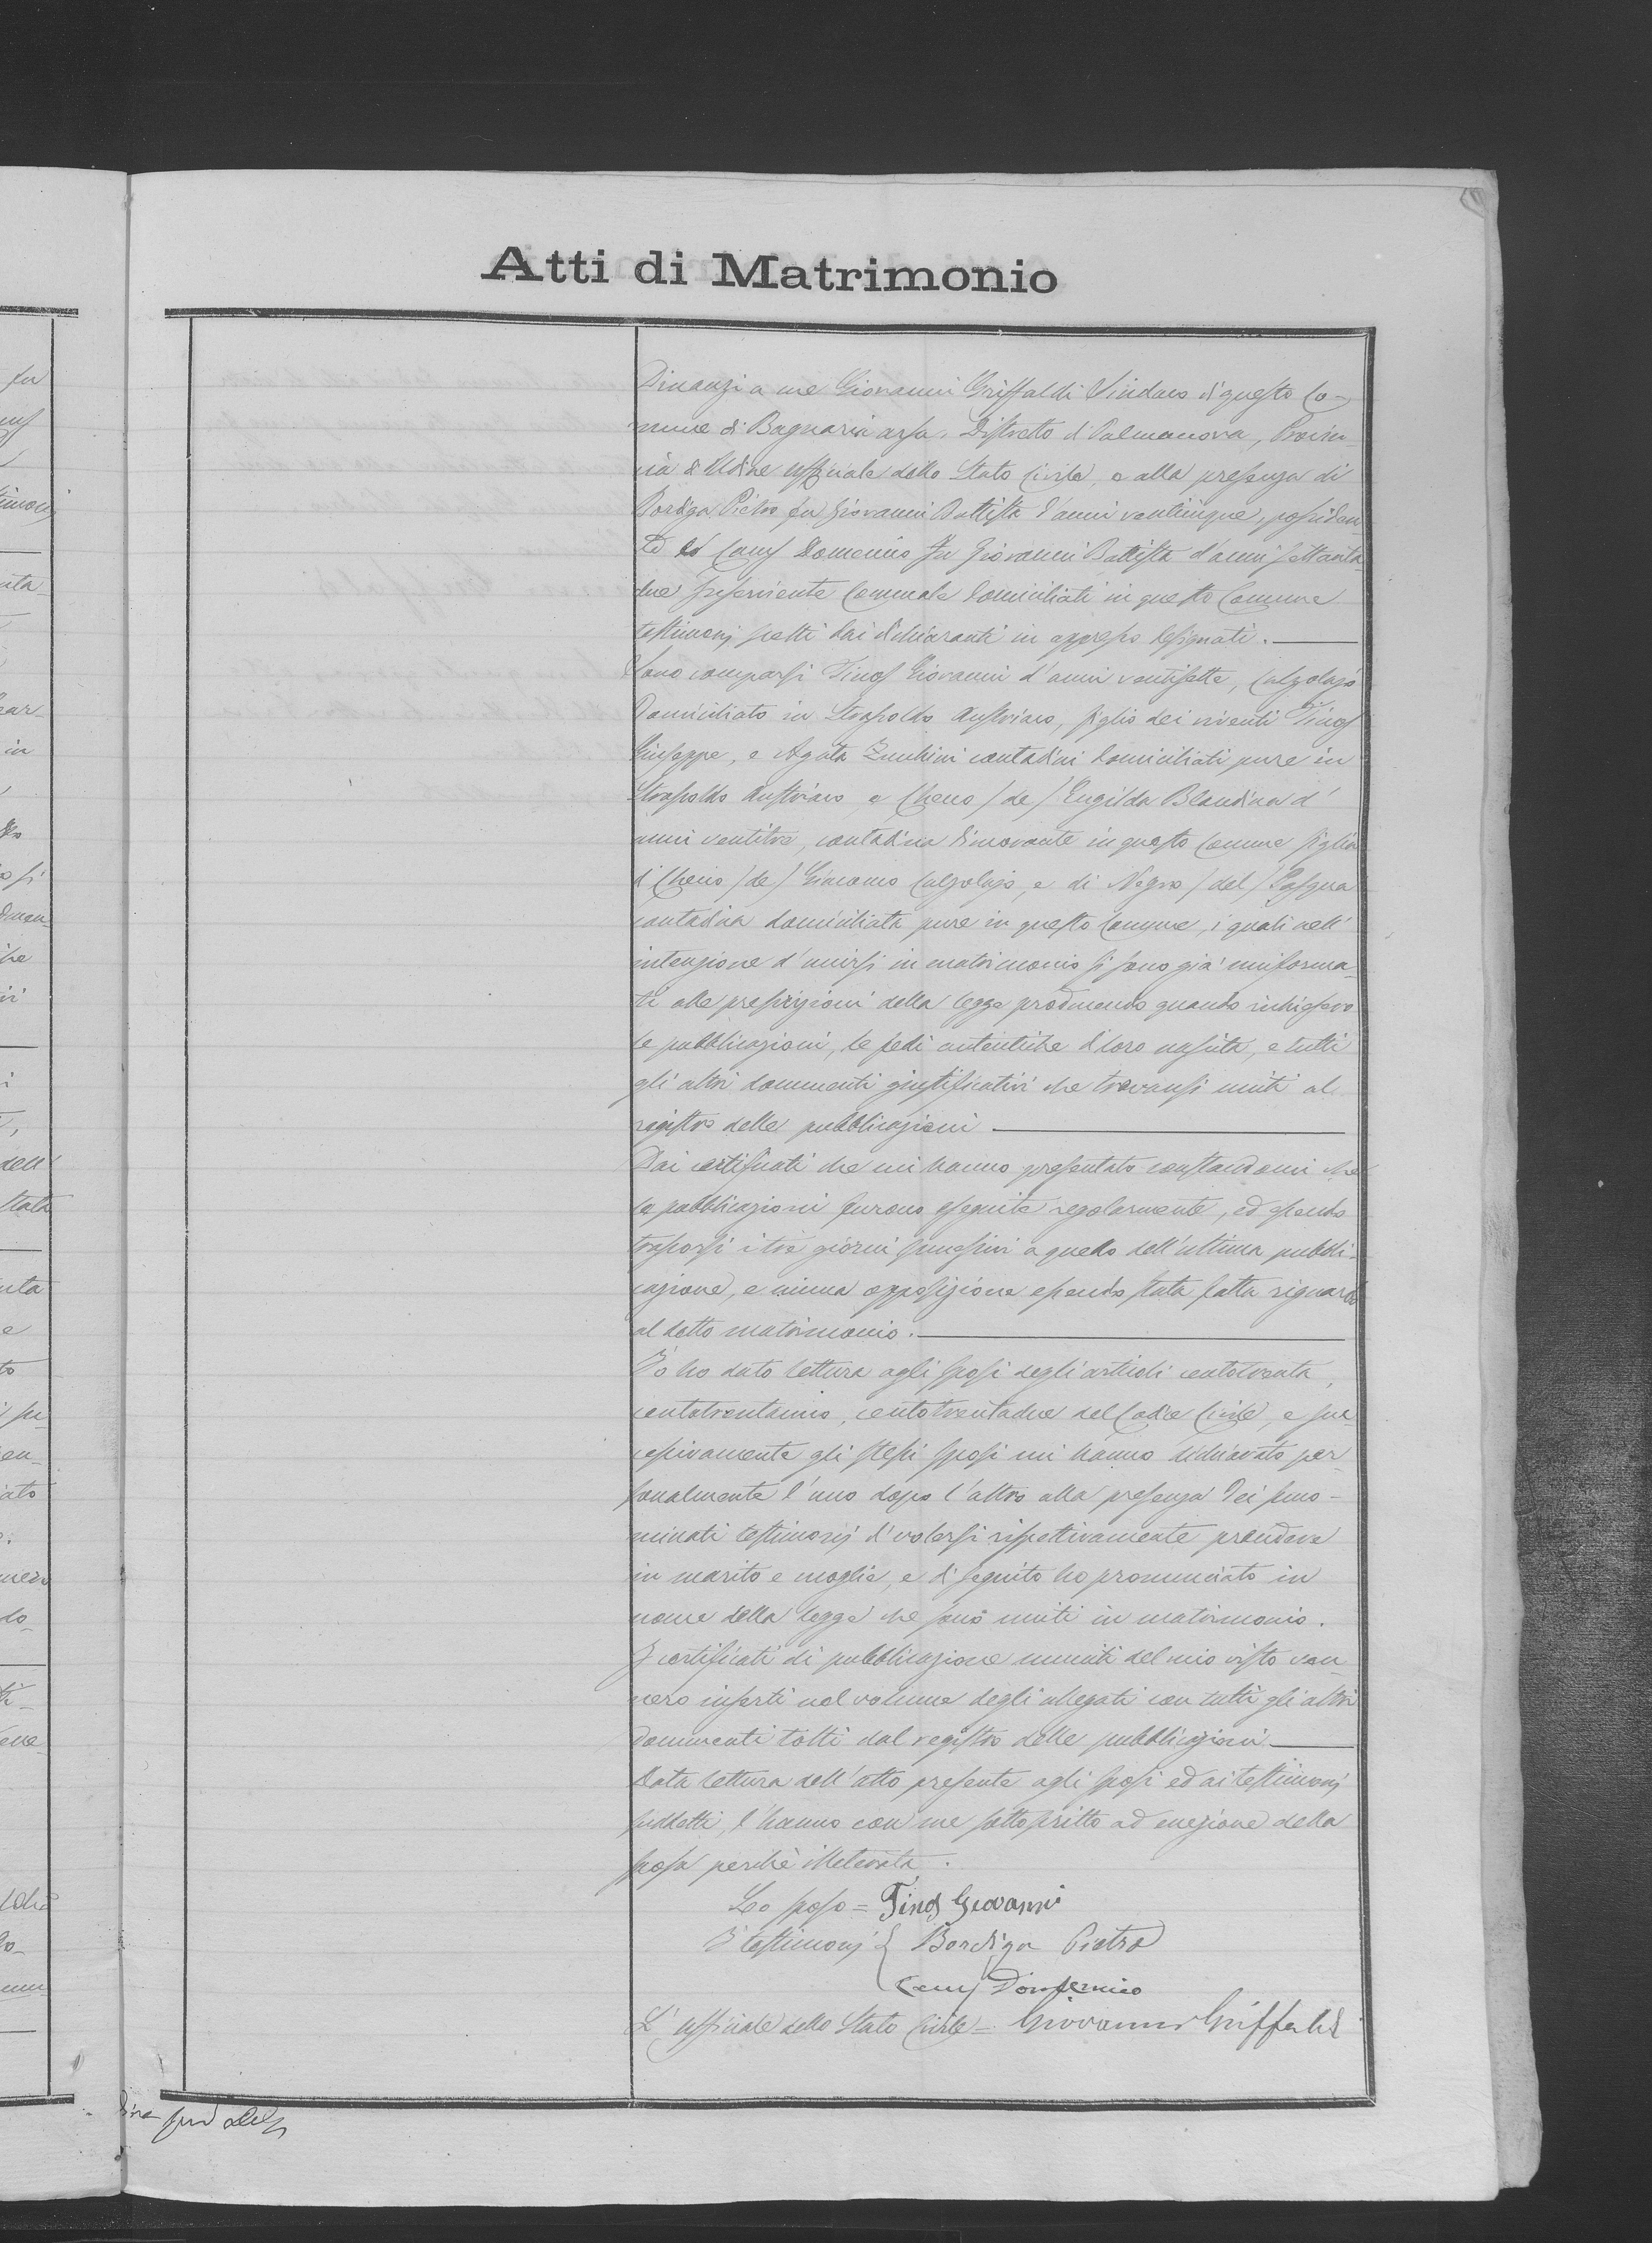 Atti di Matrimonio
Dinanzi a me Giovanni Griffaldi Sindaco di questo Co-
mune di Bagnaria arsa, Distretto di Palmanova, Provin
cia di Udine uffiziale dello Stato Civile, e alla presenza di
Bordiga Pietro fu Giovanni Battista d'anni venticinque, possiden
te ed Domenico fu Giovanni Battista d'anni settanta
due inserviente Comunale domiciliati in questo Comune
testimonj scelti dai dichiaranti in appresso designati.
Sono comparsi Tinos Giovanni d'anni ventisette, calzolajo
domiciliato in Strasoldo Austriaco, figlio dei viventi Tinos
Giuseppe, e Agata Zucchini contadini domiciliati pure in
Strasoldo Austriaco, e Checo /de/ Engilda Blandina d'
anni ventitre, contadina dimorante in questo Comune figlia
di Checo /de/ Giacomo calzolajo, e di Negro /del/ Pasqua
contadina domiciliata pure in questo Comune, i quali nell'
intenzione d'unirsi in matrimonio si sono già uniforma-
ti alle prescrizioni della legge producendo quando richiesero
le pubblicazioni, le fedi autentiche di loro nascita, e tutti
gli altri documenti giustificativi che trovansi uniti al
registro delle pubblicazioni
Dai certificati che mi hanno presentato constandomi che
le pubblicazioni furono eseguite regolarmente, ed essendo
trascorsi i tre giorni successivi a quello dell'ultima pubbli-
cazione, e niuna opposizione essendo stata fatta riguardo
al detto matrimonio.
Io ho dato lettura agli sposi degli articoli centotrenta,
centotrentauno, centotrentadue del Codice Civile, e suc
cessivamente gli stessi sposi mi hanno dichiarato per
sonalmente l'uno dopo l'altro alla presenza dei suno-
minati testimonj di volersi rispettivamente prendere
in marito e moglie, e di seguito ho pronunciato in
nome della legge che sono uniti in matrimonio.
I certificati di pubblicazione muniti del mio visto ven
nero inserti nel volume degli allegati con tutti gli altri
documenti tolti dal registro delle pubblicazioni
Data lettura dell'atto presente agli sposi ed ai testimonj
suddetti, l'hanno con me sottoscritto ad enezione della
sposa perchè illeterata.
Lo sposo = Tinos Giovanni
I testimonj { Bordiga Pietro
Domenico
L'uffiziale dello Stato Civile = Giovanni Griffaldi